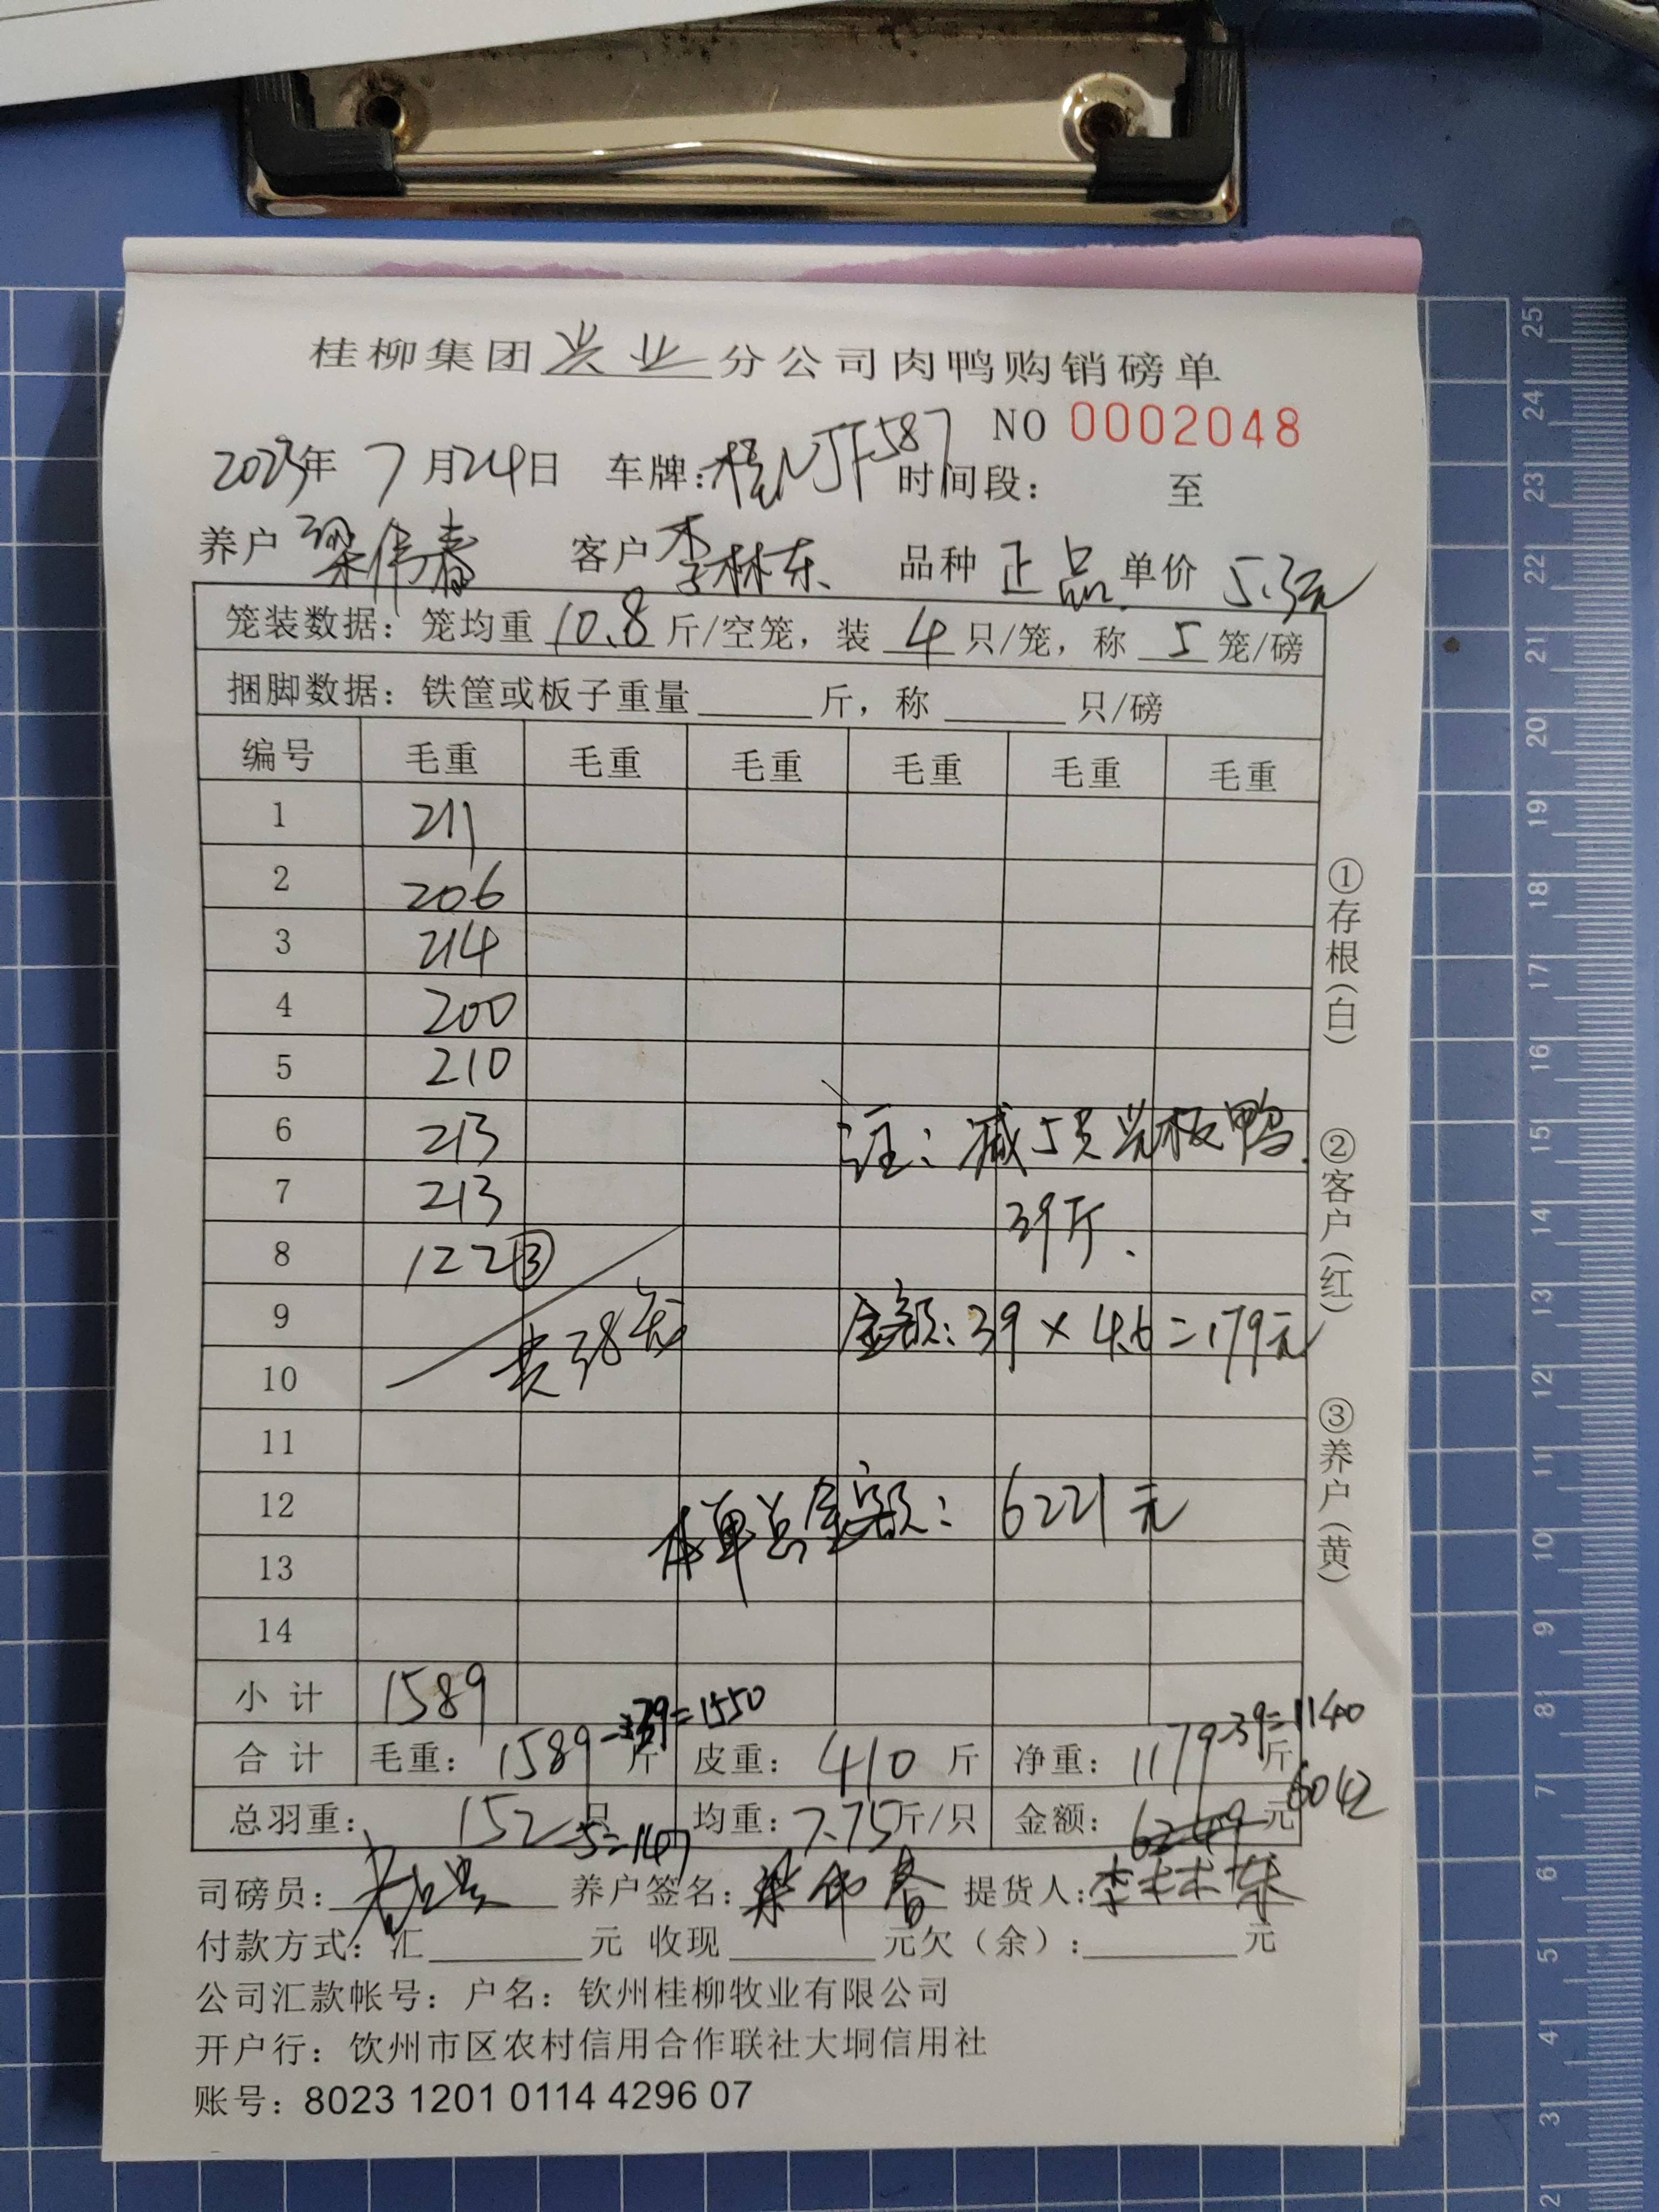 桂柳集团兴业分公司肉鸭购销磅单
NO 0002048
2023年 7月24日 车牌:桂NJF587 时间段: 至
养户 梁伟春 客户 李林东 品种 正品 单价 5.3元
笼装数据: 笼均重 10.8 斤/空笼, 装 4 只/笼, 称 5 笼/磅
捆脚数据: 铁筐或板子重量 斤, 称 只/磅
编号 毛重 毛重 毛重 毛重 毛重 毛重
1 211
2 206
3 214
4 200
5 210
6 213 注: 减5只光板鸭.
7 213 39斤.
8 122③
9 共38笼 金额:39×4.6=179元
10
11
12 本单总金额: 6221元
13
14
小计 1589
合计 毛重: 1589-39=1550 斤 皮重: 410 斤 净重: 1179-39=1140 斤
总羽重: 152-5=147 只 均重: 7.75斤/只 金额: 6249 元 6042
司磅员: 养户签名: 梁伟春 提货人: 李林东
付款方式: 汇 元 收现 元欠(余): 元
公司汇款帐号: 户名: 钦州桂柳牧业有限公司
开户行: 钦州市区农村信用合作联社大垌信用社
账号: 8023 1201 0114 4296 07
①存根(白)
②客户(红)
③养户(黄)
25
24
23
22
21
20
19
18
17
16
15
14
13
12
11
10
9
8
7
6
5
4
3
2